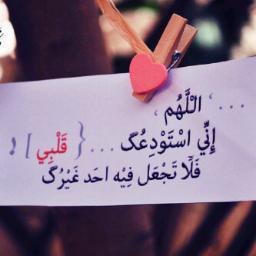 ... ، اللَّهُم ،
إِنِّي اسْتَوْدِعُكَ ... { قَلْبِي } !
فَلَا تَجْعَل فِيْه احَد غَيْرُكَ